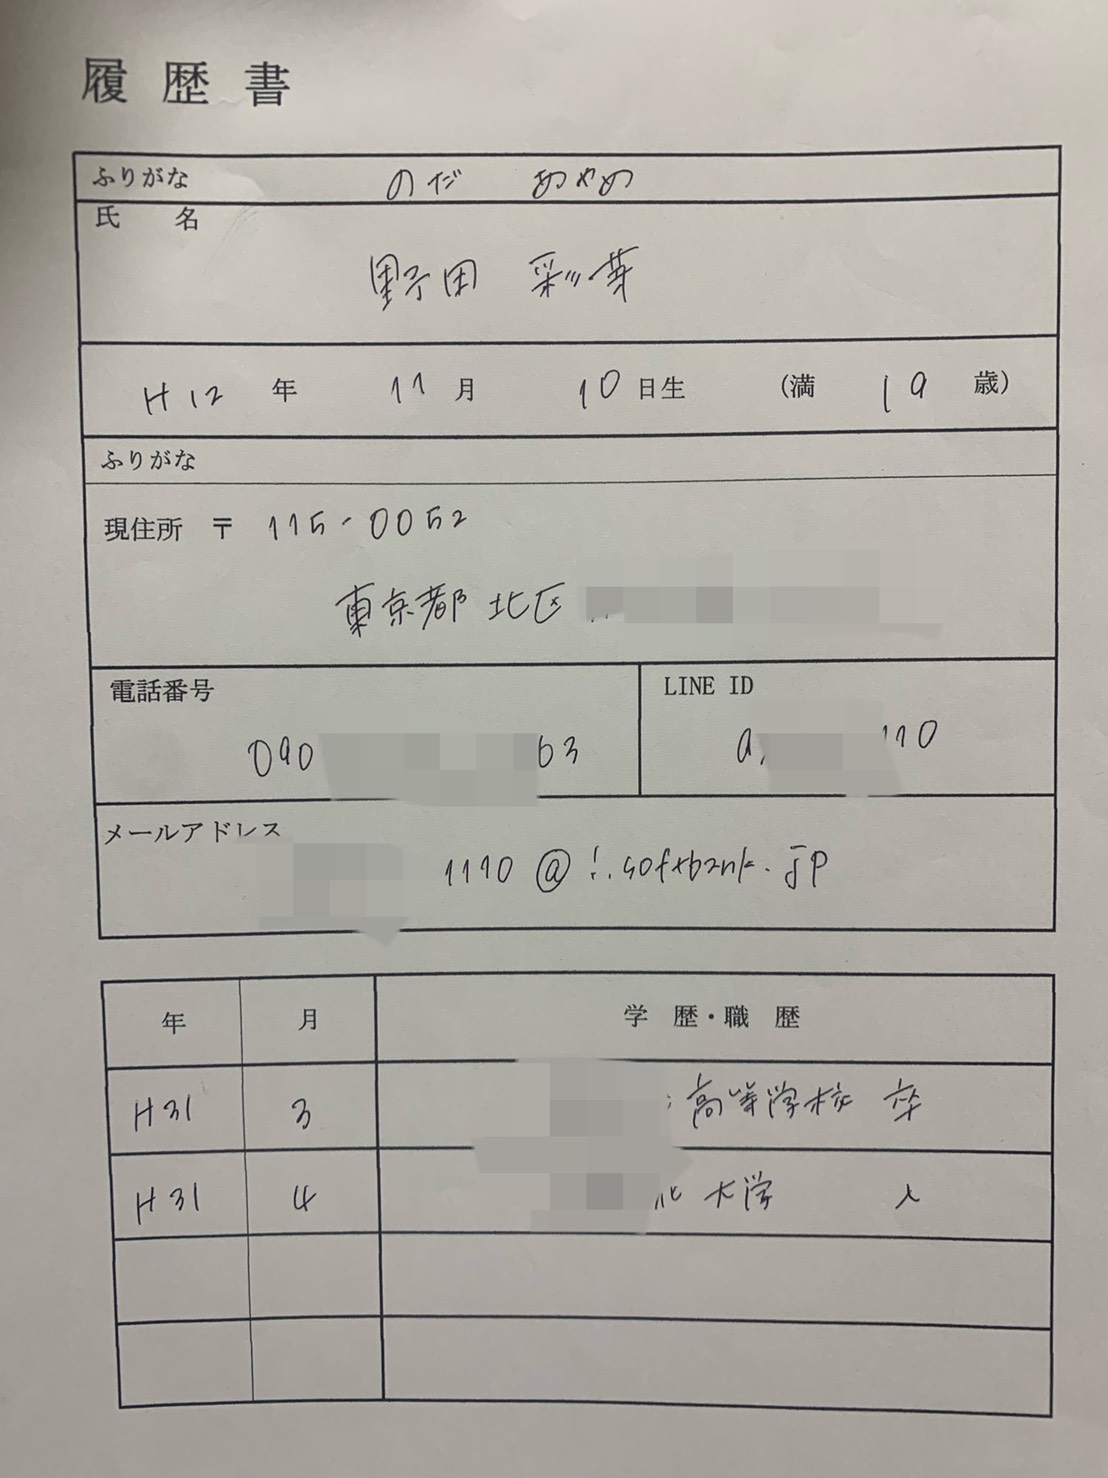 履歴書
ふりがな のだ あやめ
氏 名
野田 彩芽
H12 年 11 月 10 日生 (満 19 歳)
ふりがな
現住所 〒 115-0052
東京都 北区
電話番号
LINE ID
090 63
a 110
メールアドレス
1110@i.softbank.jp
年 月 学 歴・職 歴
H31 3 高等学校 卒
H31 4 大学 入